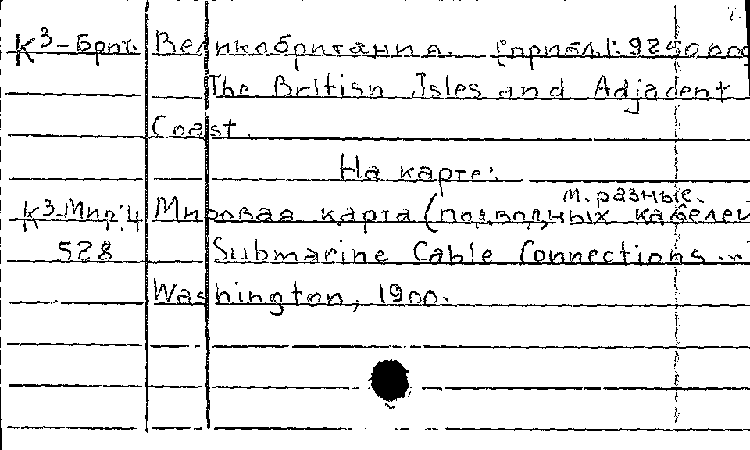 К3-Брит. Великобритания. [прибл.1:9250000
The British Isles and Adjacent
Coast.
На карте:
м. разные.
К3-Мир:4 Мировая карта (подводных кабелей
528 Submarine Cable Connections...
Washington, 1900.